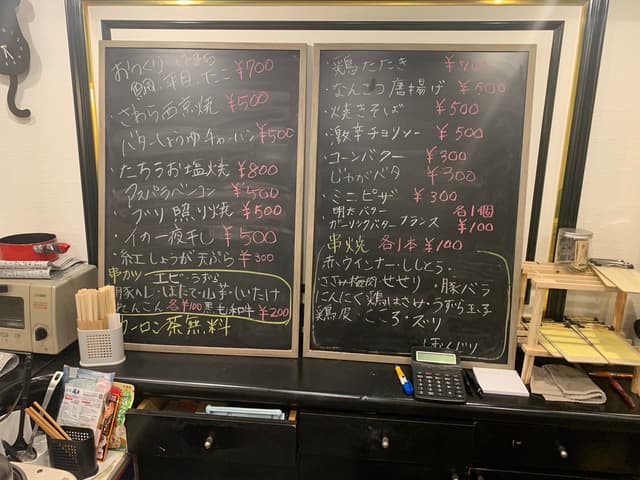 おつくり はまち
鯛・平目・たこ ¥700
・さわら西京焼 ¥500
バターしょうゆチャーハン ¥500
・たちうお塩焼 ¥800
アスパラベーコン ¥500
・ブリ照り焼 ¥500
・イカ一夜干し ¥500
・紅しょうが天ぷら ¥300
串カツ エビ・うずら
豚ヘレ・ほたて・山芋・しいたけ
れんこん 各¥100 黒毛和牛 ¥200
ウーロン茶無料
・鶏たたき
・なんこつ唐揚げ ¥500
・焼きそば ¥500
・激辛チョリソー ¥500
・コーンバター ¥300
・じゃがバタ ¥300
・ミニピザ ¥300
・明太バター 各1個
ガーリックバターフランス ¥100
串焼 各1本¥100
赤ウインナー・ししとう・
ささみ梅肉 せせり・豚バラ
にんにく 鶏はさみ・うずら玉子
鶏皮・こころ・ズリ